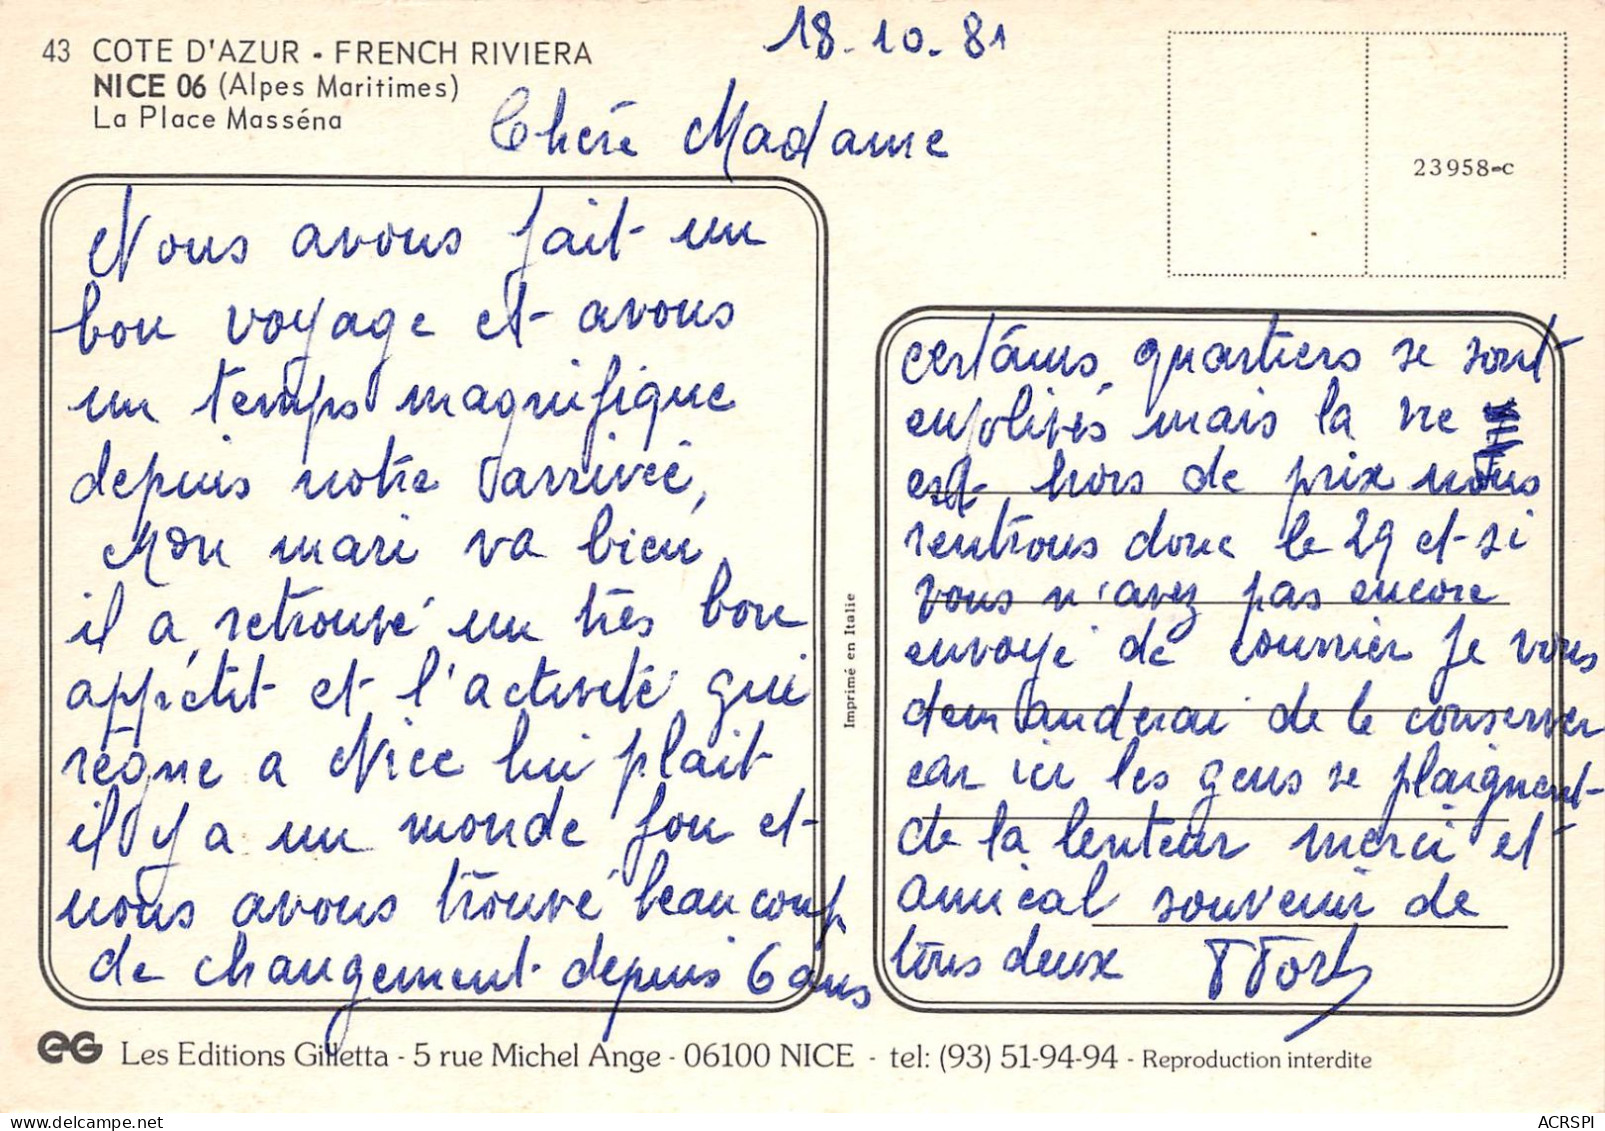 43 COTE D'AZUR - FRENCH RIVIERA
NICE 06 (Alpes Maritimes)
La Place Masséna
18-10-81
Chère Madame
23958-c
Nous avons fait un
bon voyage et avons
un temps magnifique
depuis notre arrivée,
Mon mari va bien,
il a retrouvé un très bon
appétit et l'activité qui
règne a Nice lui plait
il y a un monde fou et
nous avons trouvé beaucoup
de changement depuis 6 ans
Imprimé en Italie
certains quartiers se sont
enjolivés mais la vie
est hors de prix nous
rentrons donc le 29 et si
vous n'avez pas encore
envoyé de courrier Je vous
demanderai de le conserver
car ici les gens se plaignent
de la lenteur merci et
amical souvenir de
tous deux
EG Les Editions Gilletta - 5 rue Michel Ange - 06100 NICE - tel: (93) 51-94-94 - Reproduction interdite
delcampe.net
ACRSPI